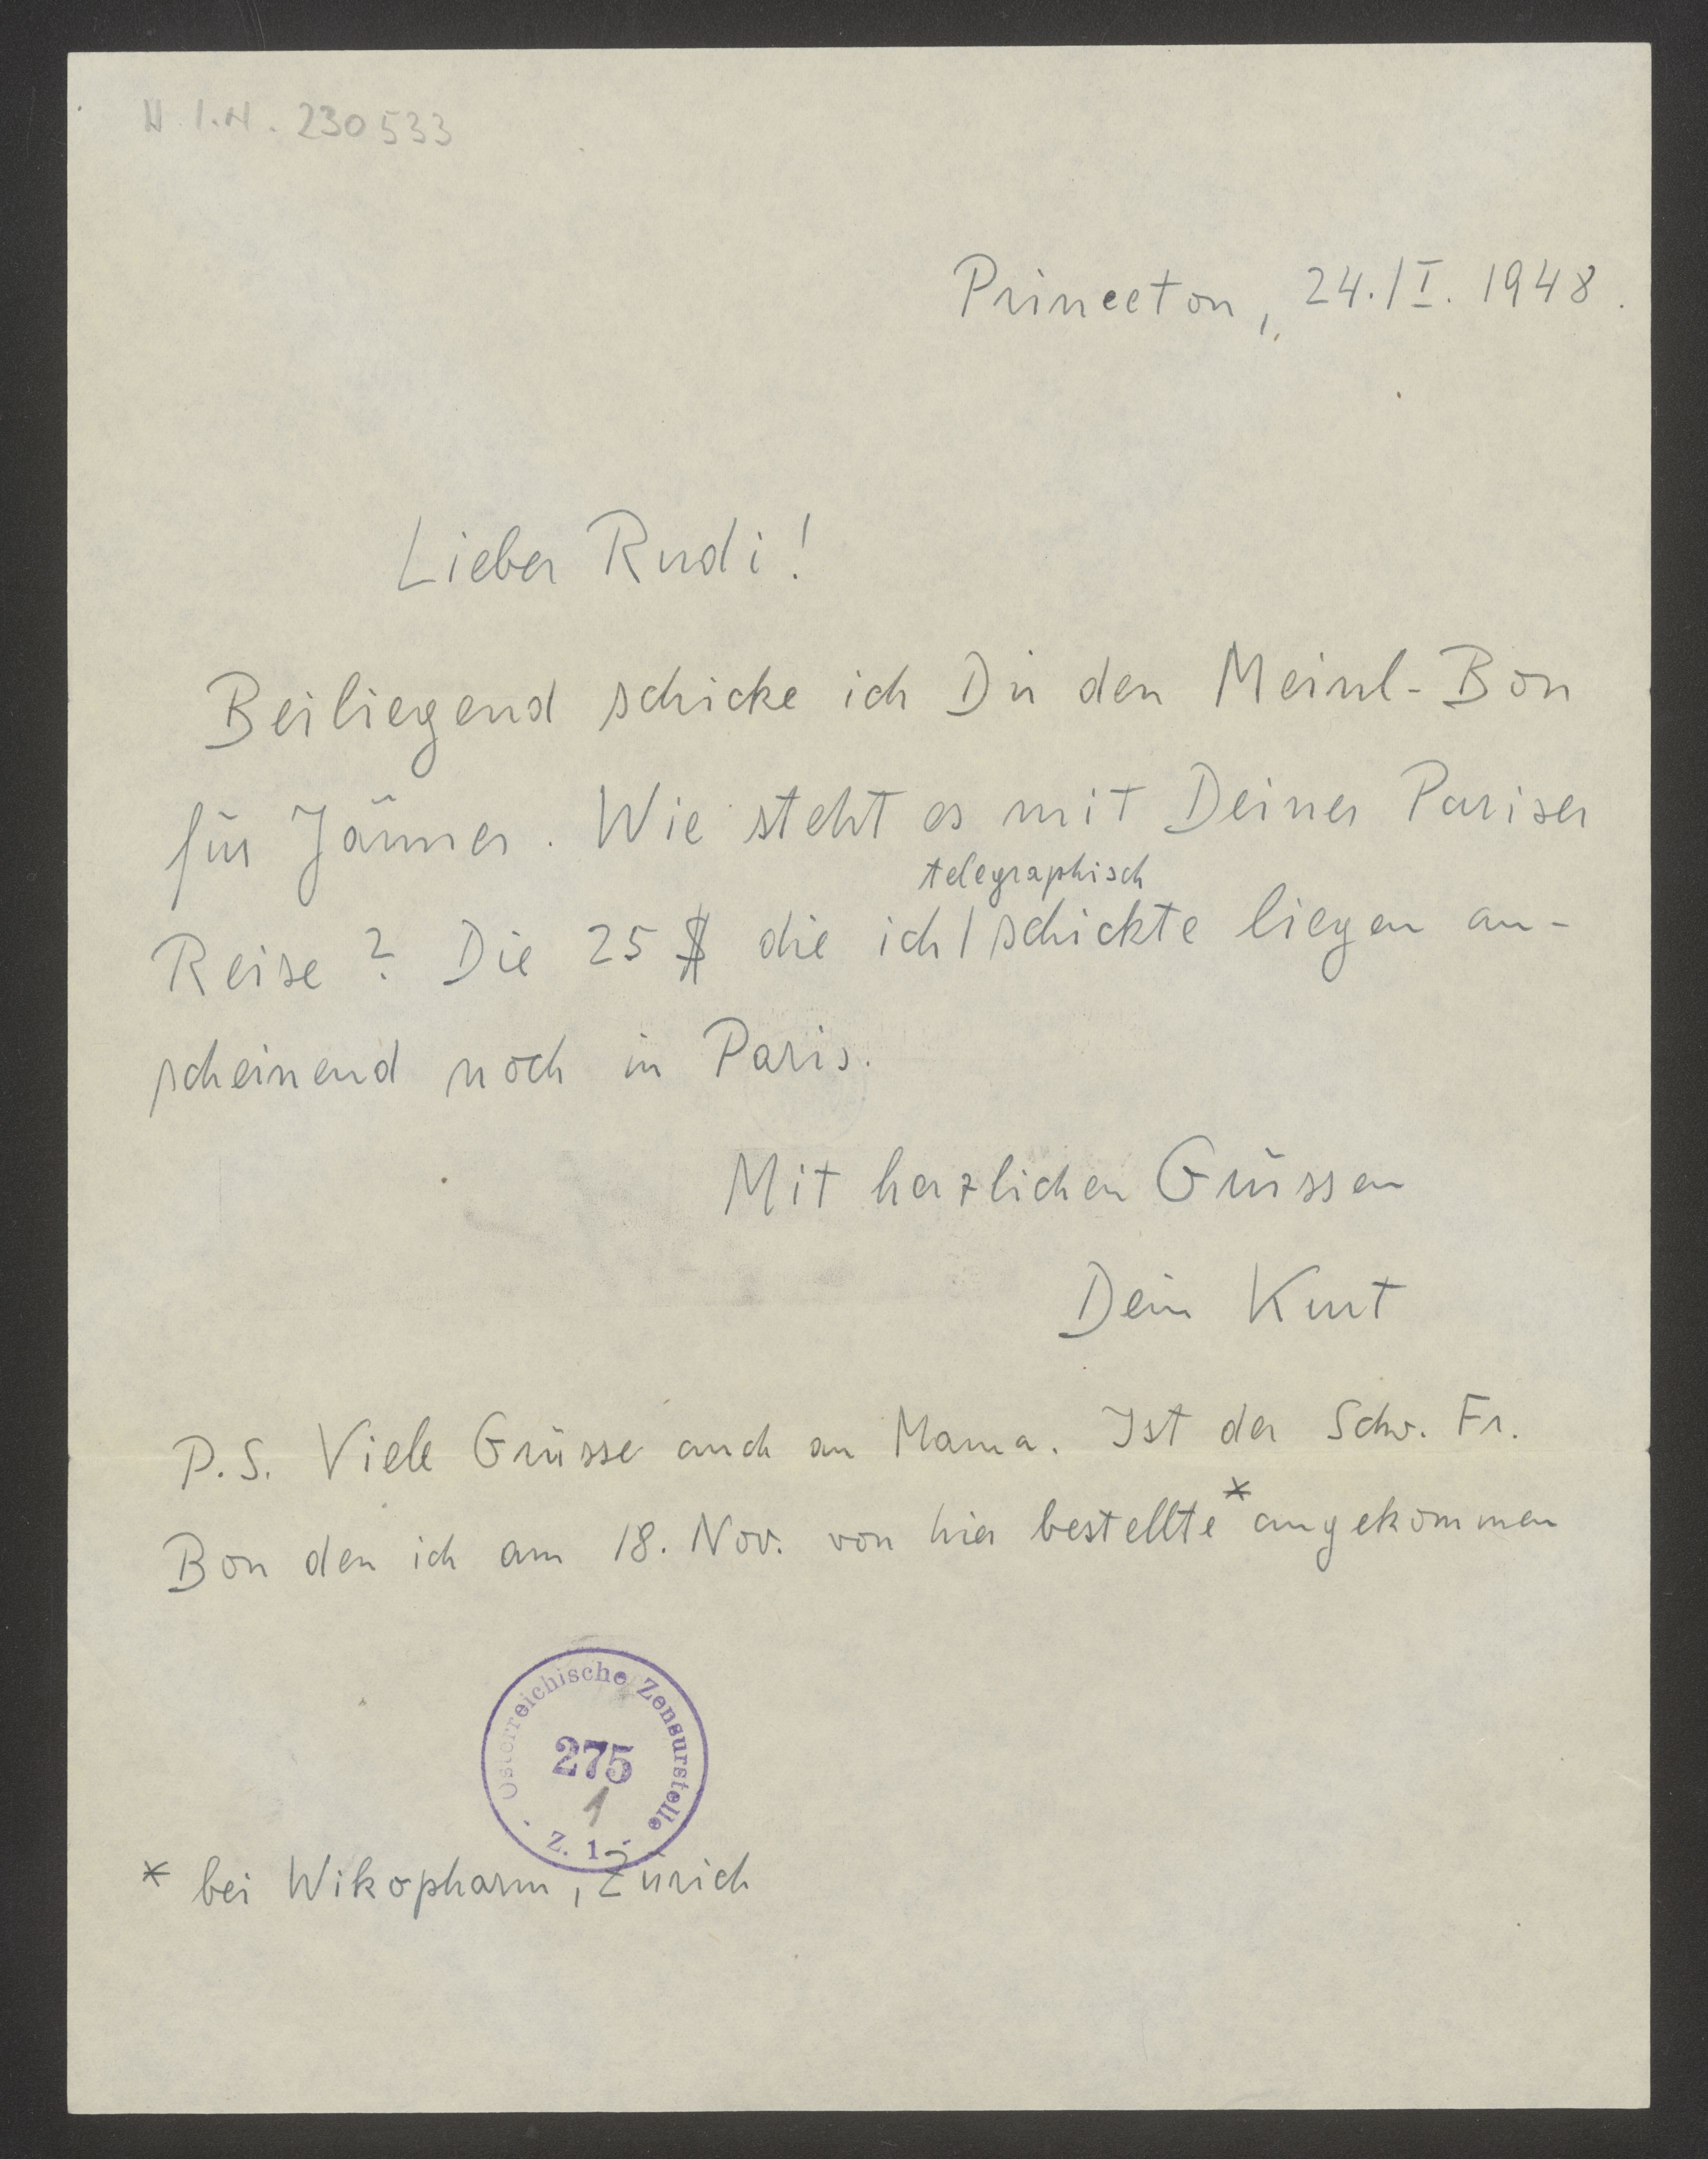 H.I.N. 230533
Princeton, 24./I. 1948.
Lieber Rudi!
Beiliegend schicke ich Dir den Meinl-Bon
für Jänner. Wie steht es mit Deiner Pariser
telegraphisch
Reise? Die 25 $ die ich / schickte liegen an-
scheinend noch in Paris.
Mit herzlichen Grüssen
Dein Kurt
P.S. Viele Grüsse auch an Mama. Ist der Schw. Fr.
Bon den ich am 18. Nov. von hier bestellte * angekommen
Österreichische Zensurstelle
275
1
- Z. 1 -
* bei Wikopharm, Zürich